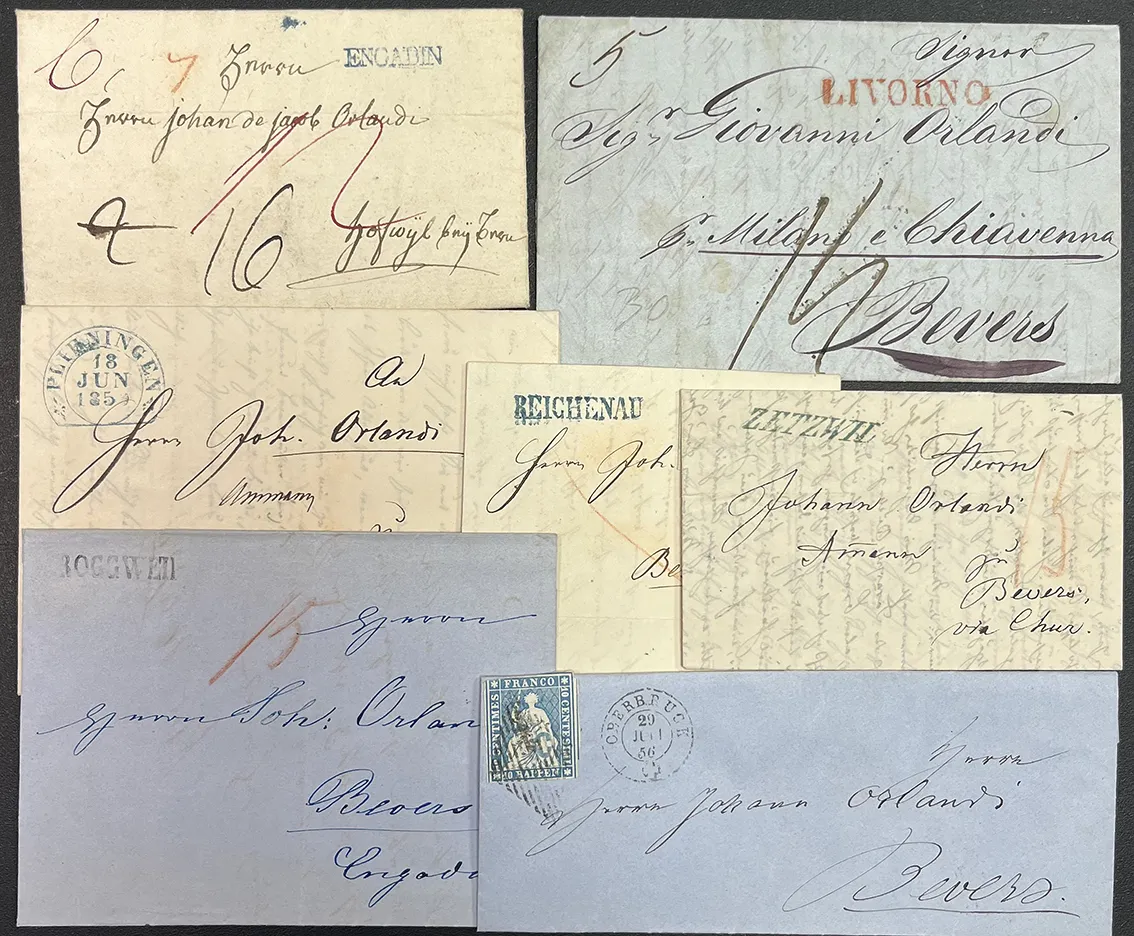 6
7
Herrn
ENGADIN
Herrn Johan de Jacob Orlandi
12
4
16
Hofwÿl beÿ Bern
5
Signor
LIVORNO
Sigr Giovanni Orlandi
pr Milano e Chiavenna
30
Bevers
PLIENINGEN
18
JUN
185
An
Herrn Joh. Orlandi
Ammann
zu
REICHENAU
Herrn Joh.
Be
ZETZWIL
Herrn
Johann Orlandi
Amann
zu
Bevers,
via Chur.
15
ROGGWEIL
15
Herrn
Herrn Joh: Orlan
Bevers
Engadi
FRANCO
10 CENTESIMI
10 RAPPEN
CENTIMES
OBERBRUCK
29
JULI
56
Herrn
Herrn Johann Orlandi
Bevers.